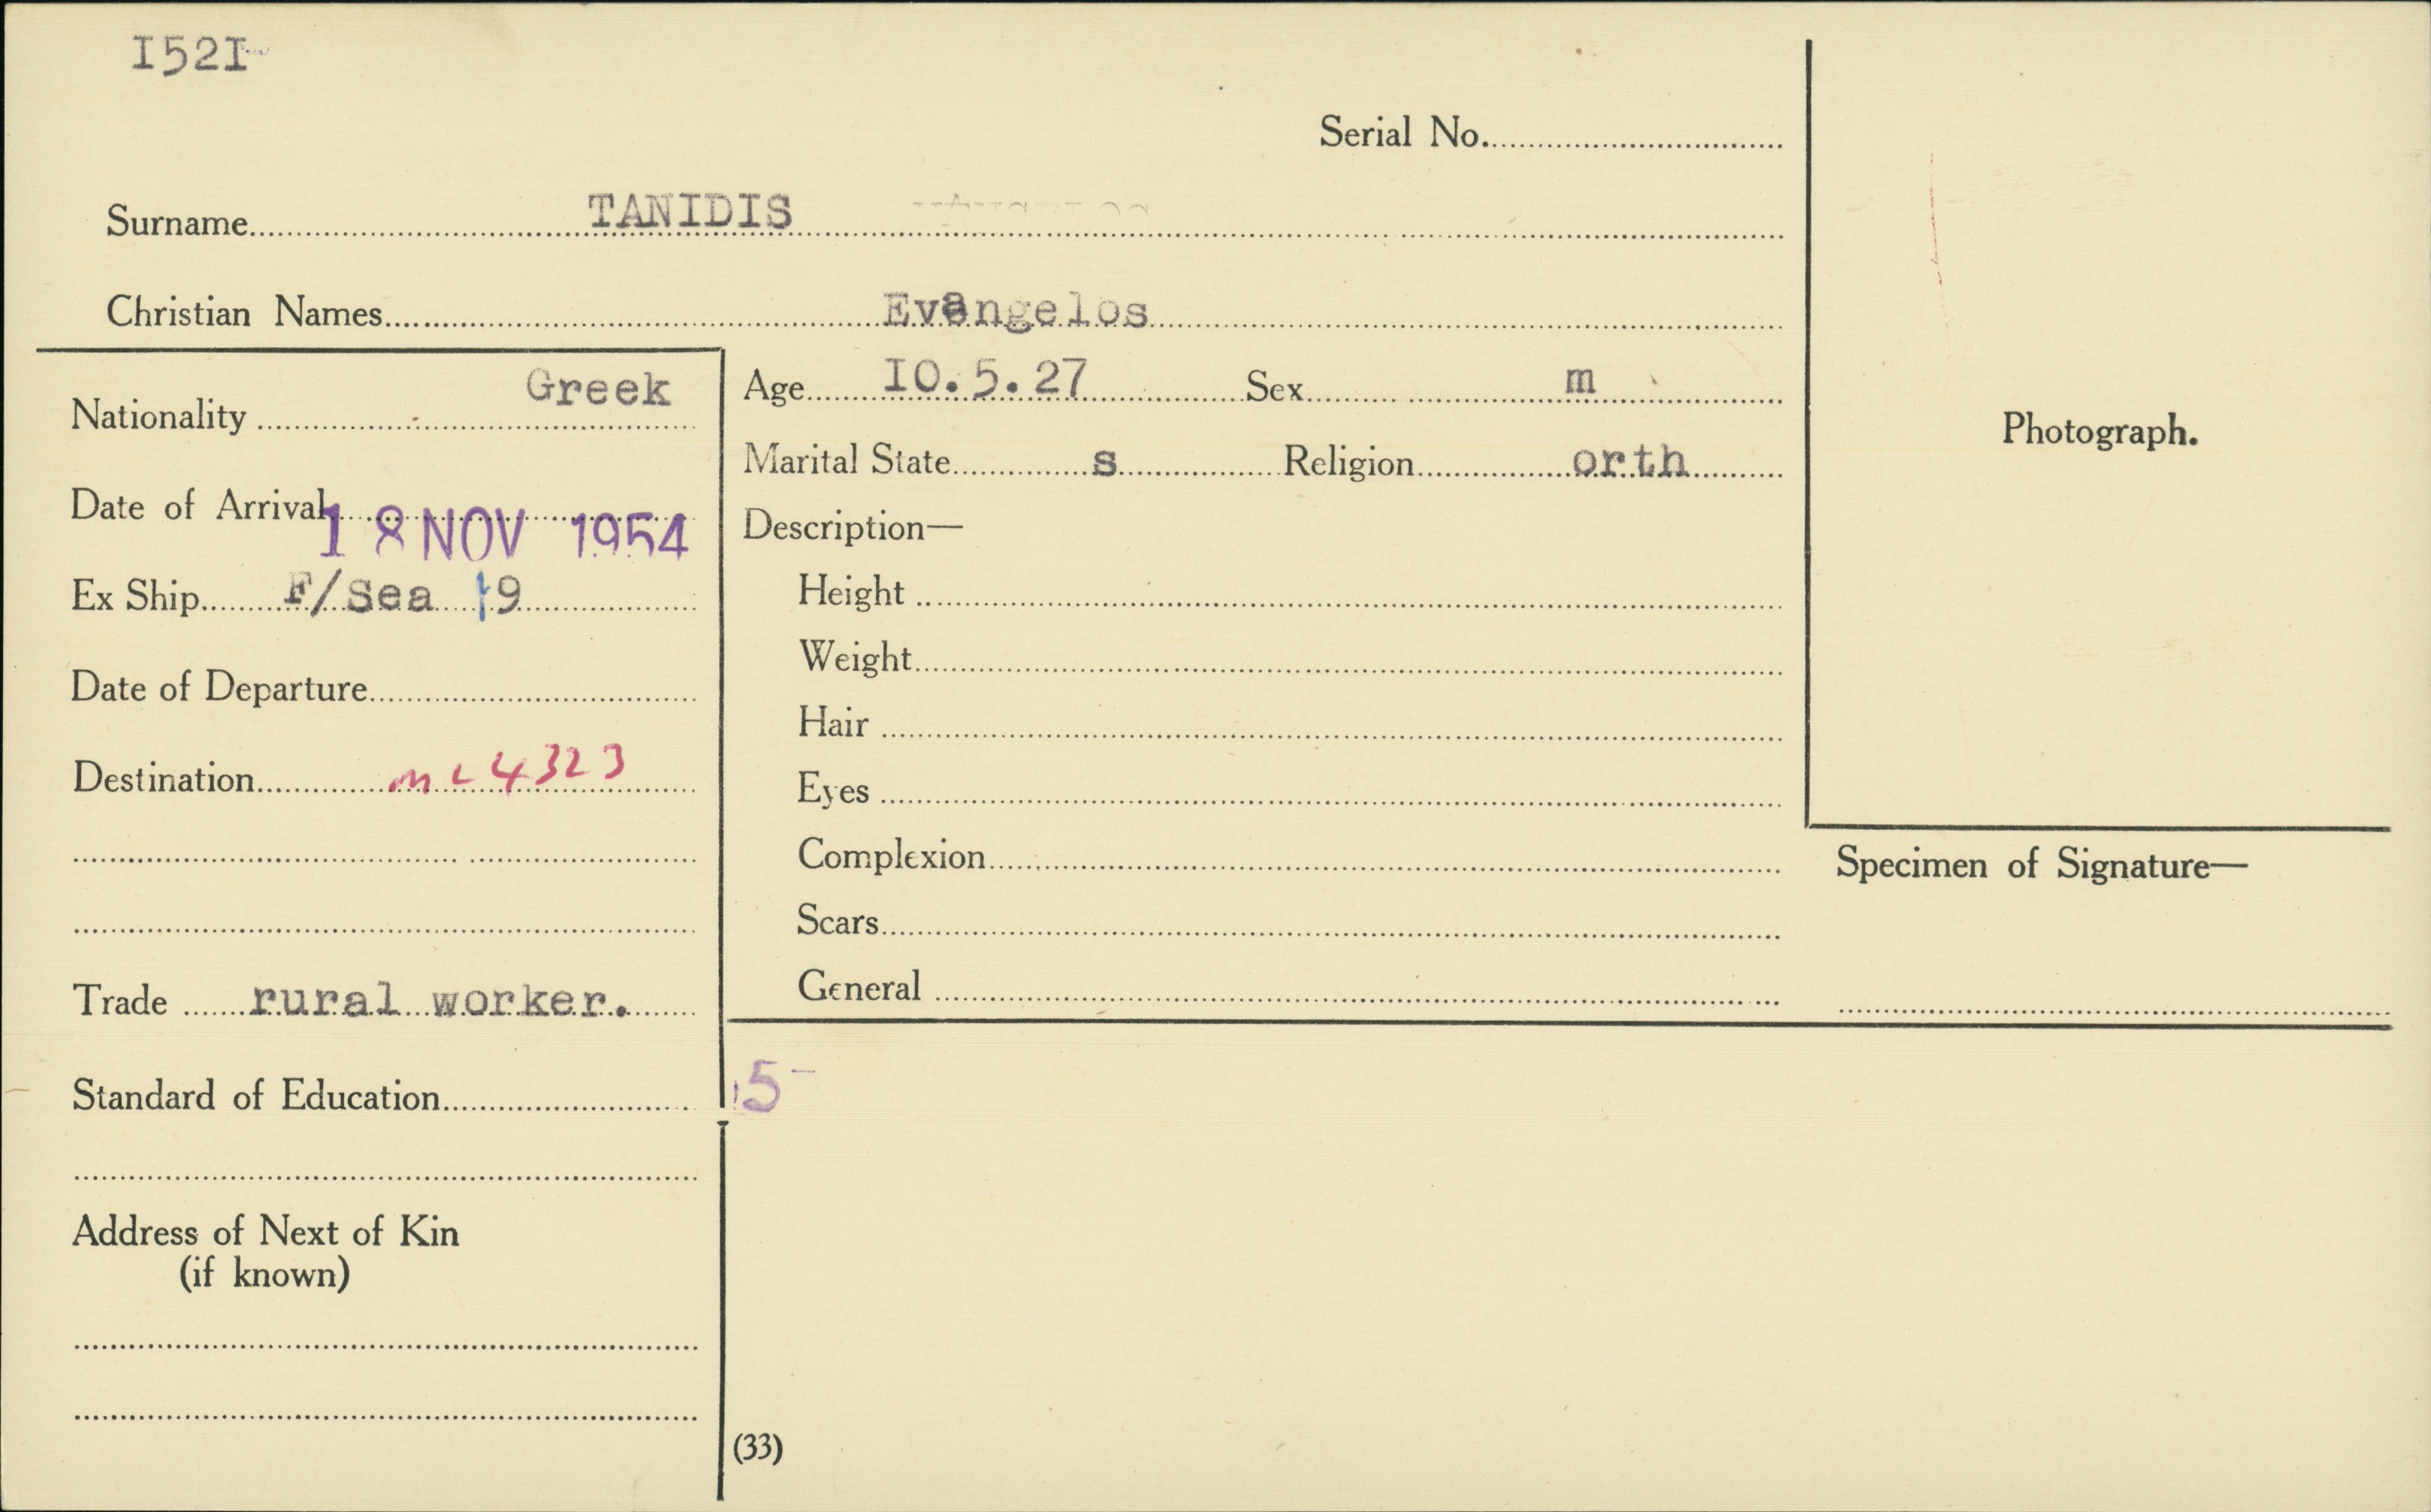 I52I
Serial No.
Surname TANIDIS
Christian Names Evangelos
Nationality Greek
Date of Arrival 18 NOV 1954
Ex Ship F/Sea 19
Date of Departure
Destination mc 4323
Trade rural worker.
Standard of Education
Address of Next of Kin
(if known)
Age IO.5.27 Sex m
Marital State s Religion orth
Description—
Height
Weight
Hair
Eyes
Complexion
Scars
General
5
(33)
Photograph.
Specimen of Signature—